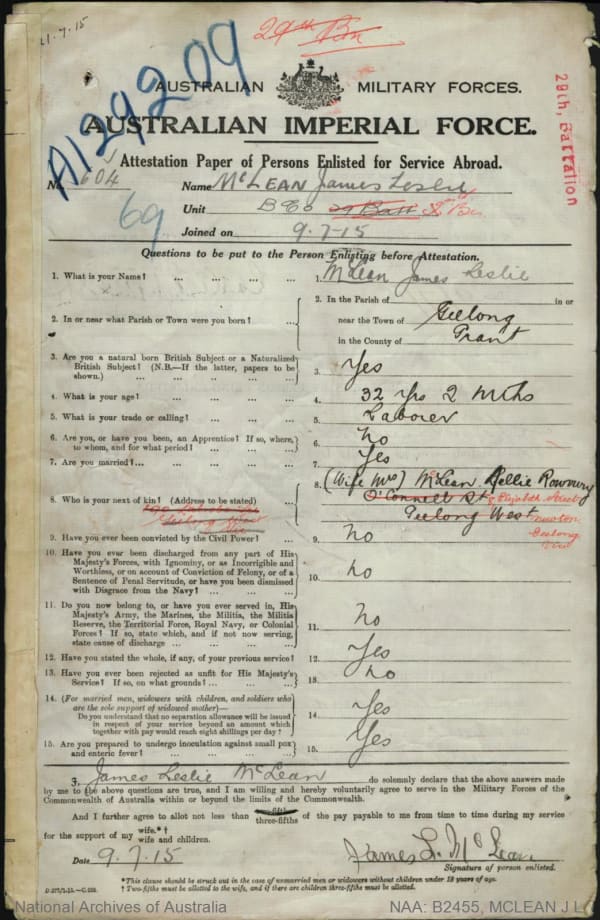 21.7.15
29th Bn
A129209
AUSTRALIAN MILITARY FORCES.
AUSTRALIAN IMPERIAL FORCE.
29th, Battalion
Attestation Paper of Persons Enlisted for Service Abroad.
No. 604
Name McLEAN James Leslie
69
Unit B Co 29 Batt
Joined on 9.7.15
Questions to be put to the Person Enlisting before Attestation.
1. What is your Name? ... ... ... ...
1. McLean James Leslie
2. In or near what Parish or Town were you born? ...
2. In the Parish of in or
near the Town of Geelong
in the County of Grant
3. Are you a natural born British Subject or a Naturalized
British Subject? (N.B.—If the latter, papers to be
shown.) ... ... ... ... ...
3. Yes
4. What is your age? ... ... ... ...
4. 32 yrs 2 Mths
5. What is your trade or calling? ... ... ...
5. Laborer
6. Are you, or have you been, an Apprentice? If so, where,
to whom, and for what period? ... ... ...
6. No
7. Are you married? ... ... ... ...
7. Yes
8. Who is your next of kin? (Address to be stated) ...
8. (Wife Mrs) McLean Nellie
O'Connell St Elizabeth Street
Geelong West Newtown
Geelong
9. Have you ever been convicted by the Civil Power? ...
9. No
10. Have you ever been discharged from any part of His
Majesty's Forces, with Ignominy, or as Incorrigible and
Worthless, or on account of Conviction of Felony, or of a
Sentence of Penal Servitude, or have you been dismissed
with Disgrace from the Navy? ... ... ...
10. No
11. Do you now belong to, or have you ever served in, His
Majesty's Army, the Marines, the Militia, the Militia
Reserve, the Territorial Force, Royal Navy, or Colonial
Forces? If so, state which, and if not now serving,
state cause of discharge ... ... ...
11. No
12. Have you stated the whole, if any, of your previous service?
12. Yes
13. Have you ever been rejected as unfit for His Majesty's
Service? If so, on what grounds? ... ... ...
13. No
14. (For married men, widowers with children, and soldiers who
are the sole support of widowed mother)—
Do you understand that no separation allowance will be issued
in respect of your service beyond an amount which
together with pay would reach eight shillings per day?
14. Yes
15. Are you prepared to undergo inoculation against small pox
and enteric fever? ... ... ... ...
15. Yes
I, James Leslie McLean do solemnly declare that the above answers made
by me to the above questions are true, and I am willing and hereby voluntarily agree to serve in the Military Forces of the
Commonwealth of Australia within or beyond the limits of the Commonwealth.
And I further agree to allot not less than two-fifths three-fifths of the pay payable to me from time to time during my service
for the support of my wife.*†
wife and children.
Date 9.7.15
James L. McLean
Signature of person enlisted.
*This clause should be struck out in the case of unmarried men or widowers without children under 18 years of age.
† Two-fifths must be allotted to the wife, and if there are children three-fifths must be allotted.
National Archives of Australia
NAA: B2455, MCLEAN J L